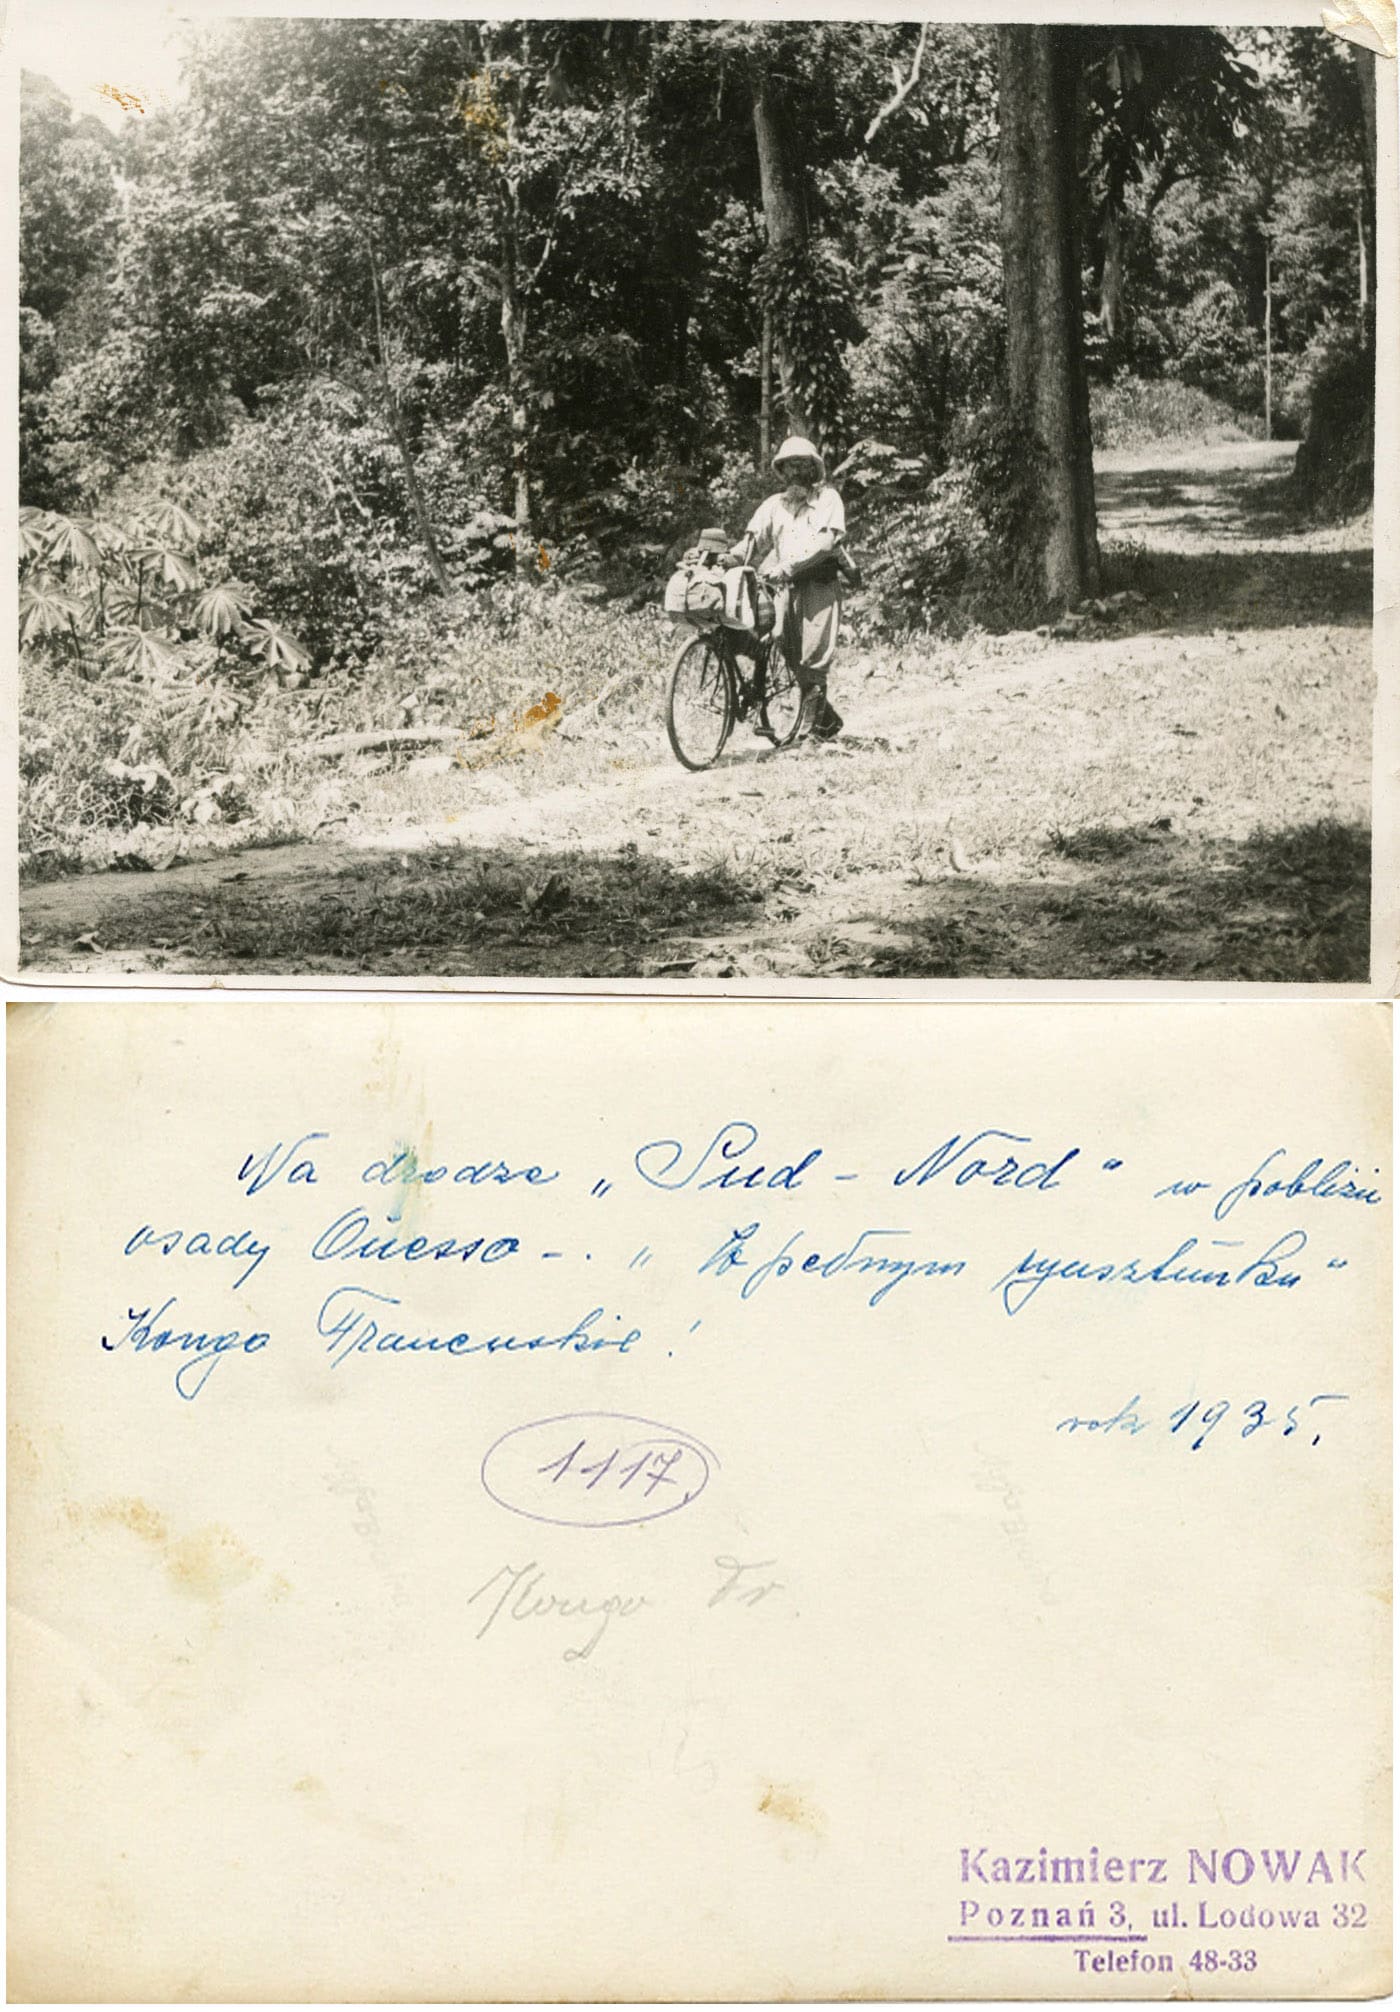 Na drodze „Sud - Nord" w pobliżu
osady Ouesso -. „W pełnym rynsztunku"
Kongo Francuskie!
rok 1935.
1117.
Kongo Fr.
Kazimierz NOWAK
Poznań 3, ul. Lodowa 32
Telefon 48-33